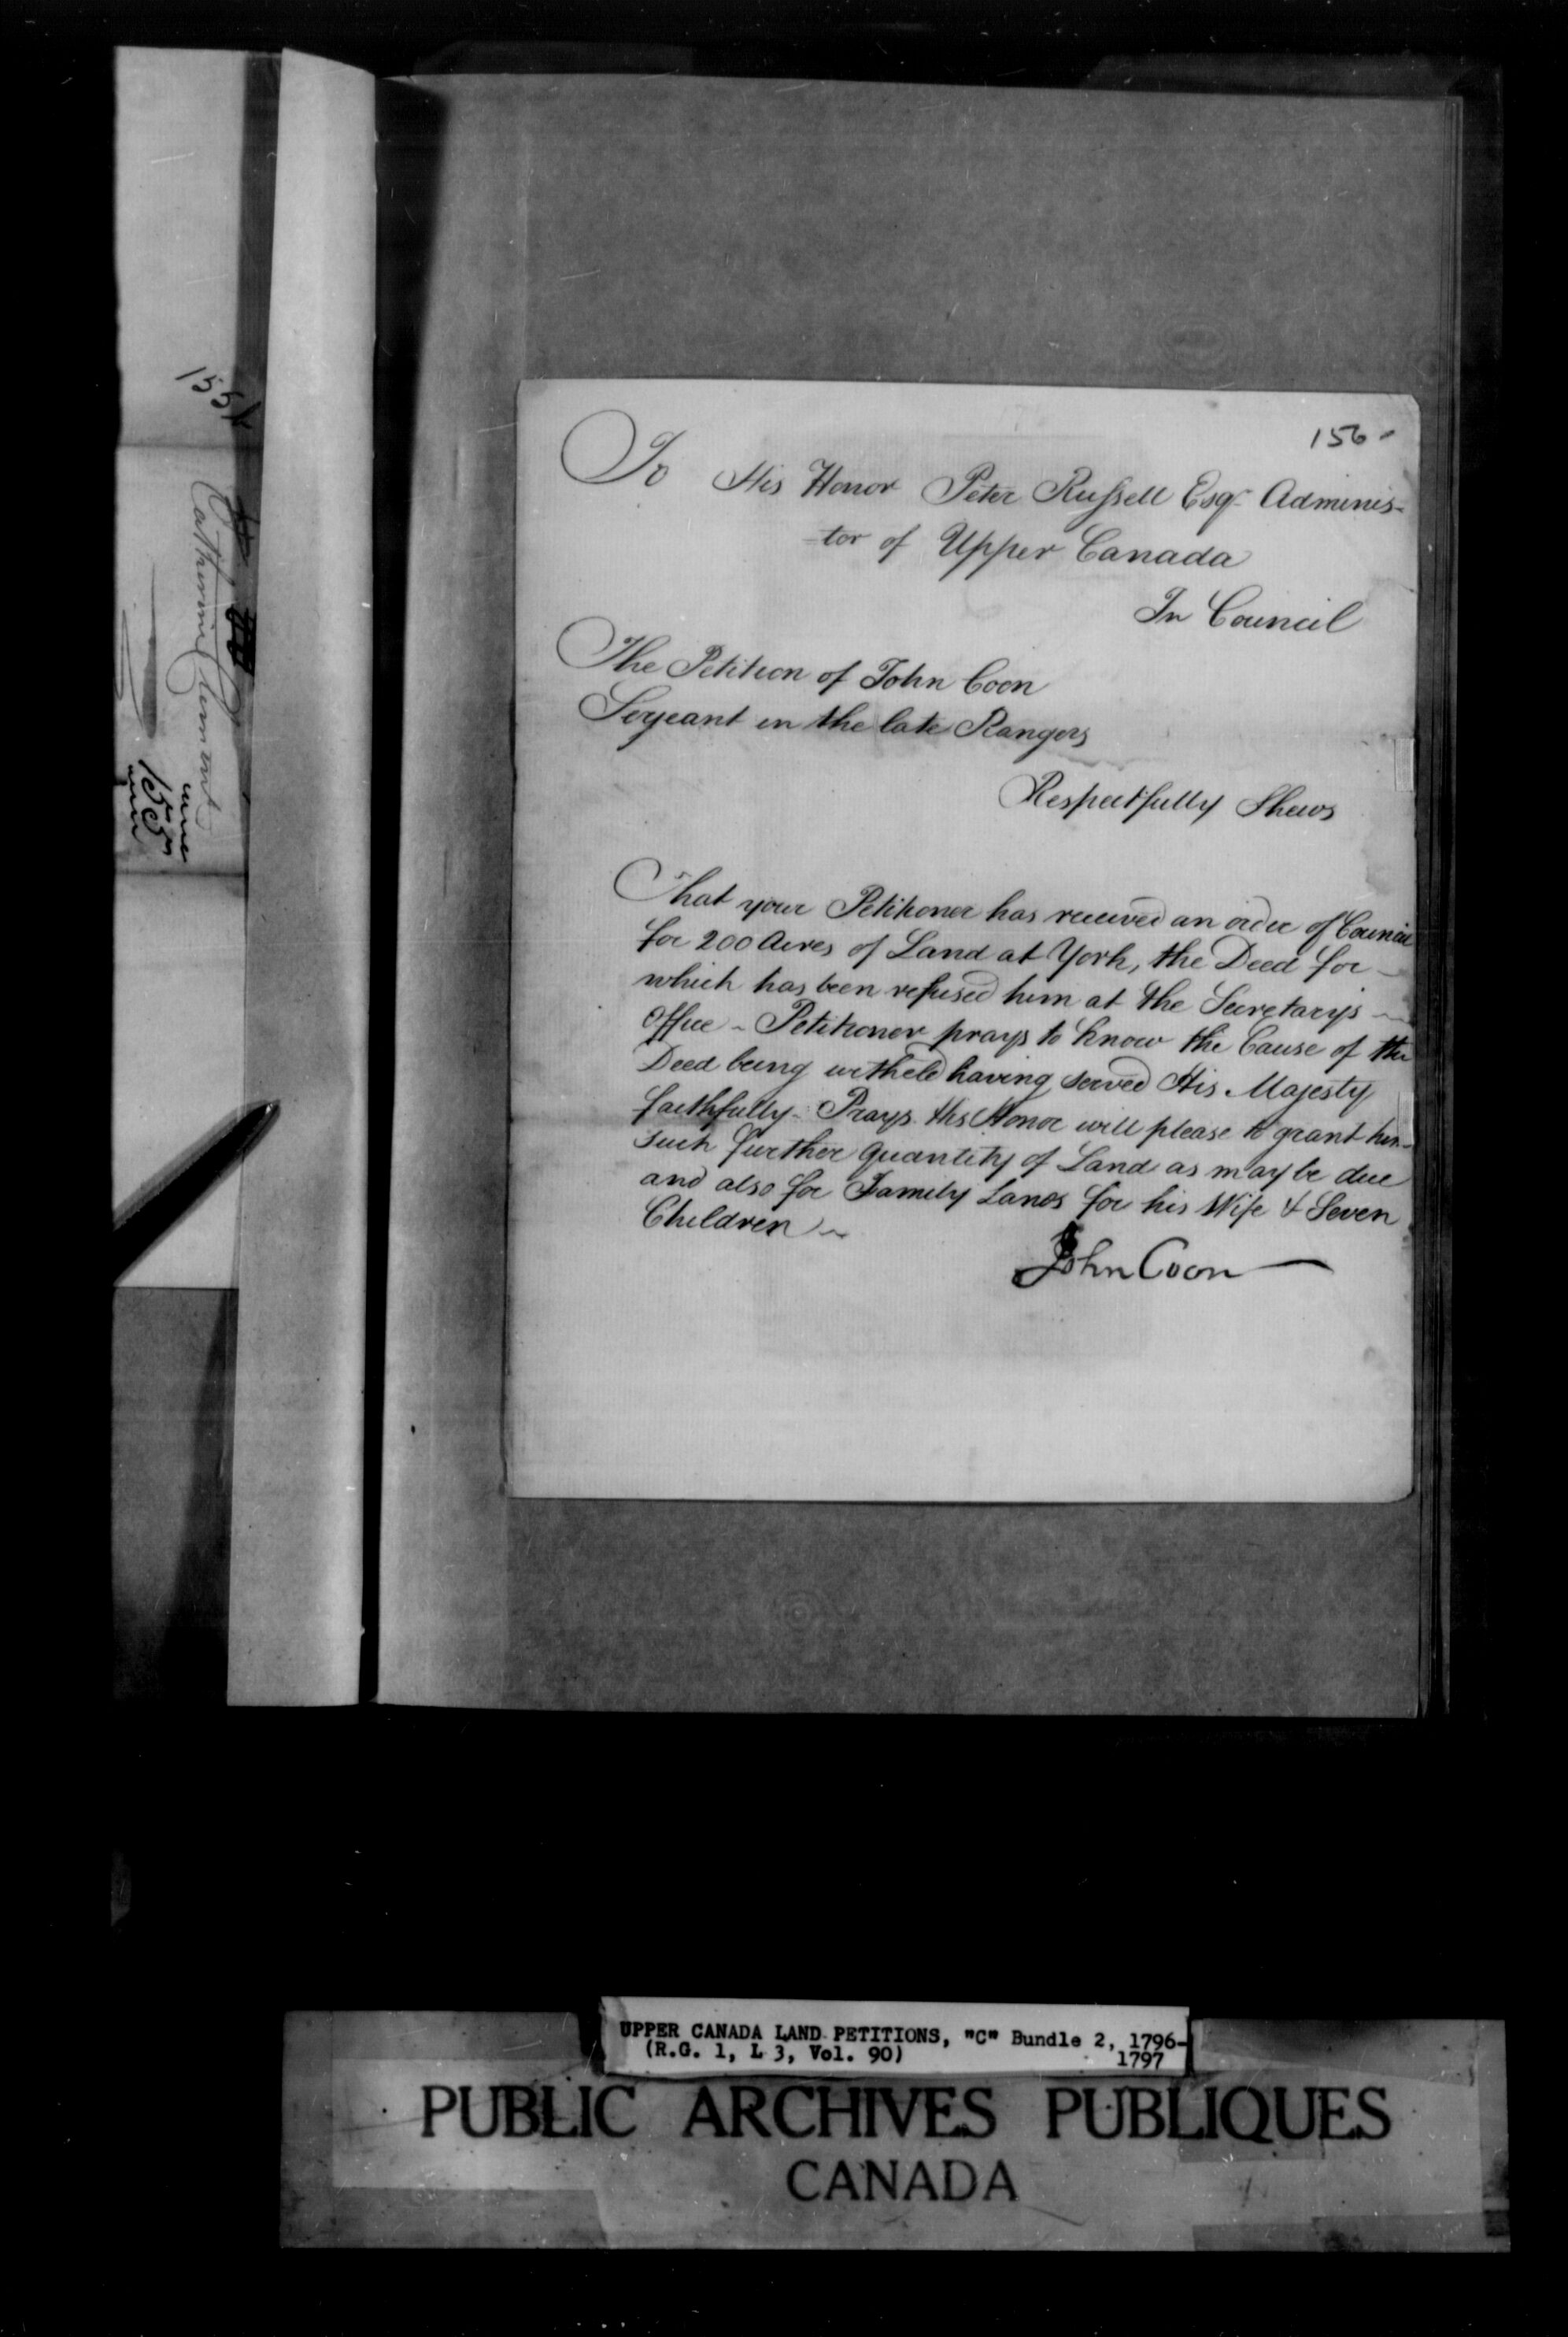 155b
Catherine Clement
155
156
To His Honor Peter Russell Esqr Adminis-
-tor of Upper Canada
In Council
The Petition of John Coon
Serjeant in the late Rangers
Respectfully Shews
That your Petitioner has received an order of Council
for 200 Acres of Land at York, the Deed for
which has been refused him at the Secretarys
Office - Petitioner prays to know the Cause of the
Deed being witheld having served His Majesty
faithfully - Prays His Honor will please to grant him
such further Quantity of Land as may be due
and also for Family Lands for his Wife & Seven
Children
John Coon
UPPER CANADA LAND PETITIONS, "C" Bundle 2, 1796-
(R.G. 1, L 3, Vol. 90) 1797
PUBLIC ARCHIVES PUBLIQUES
CANADA